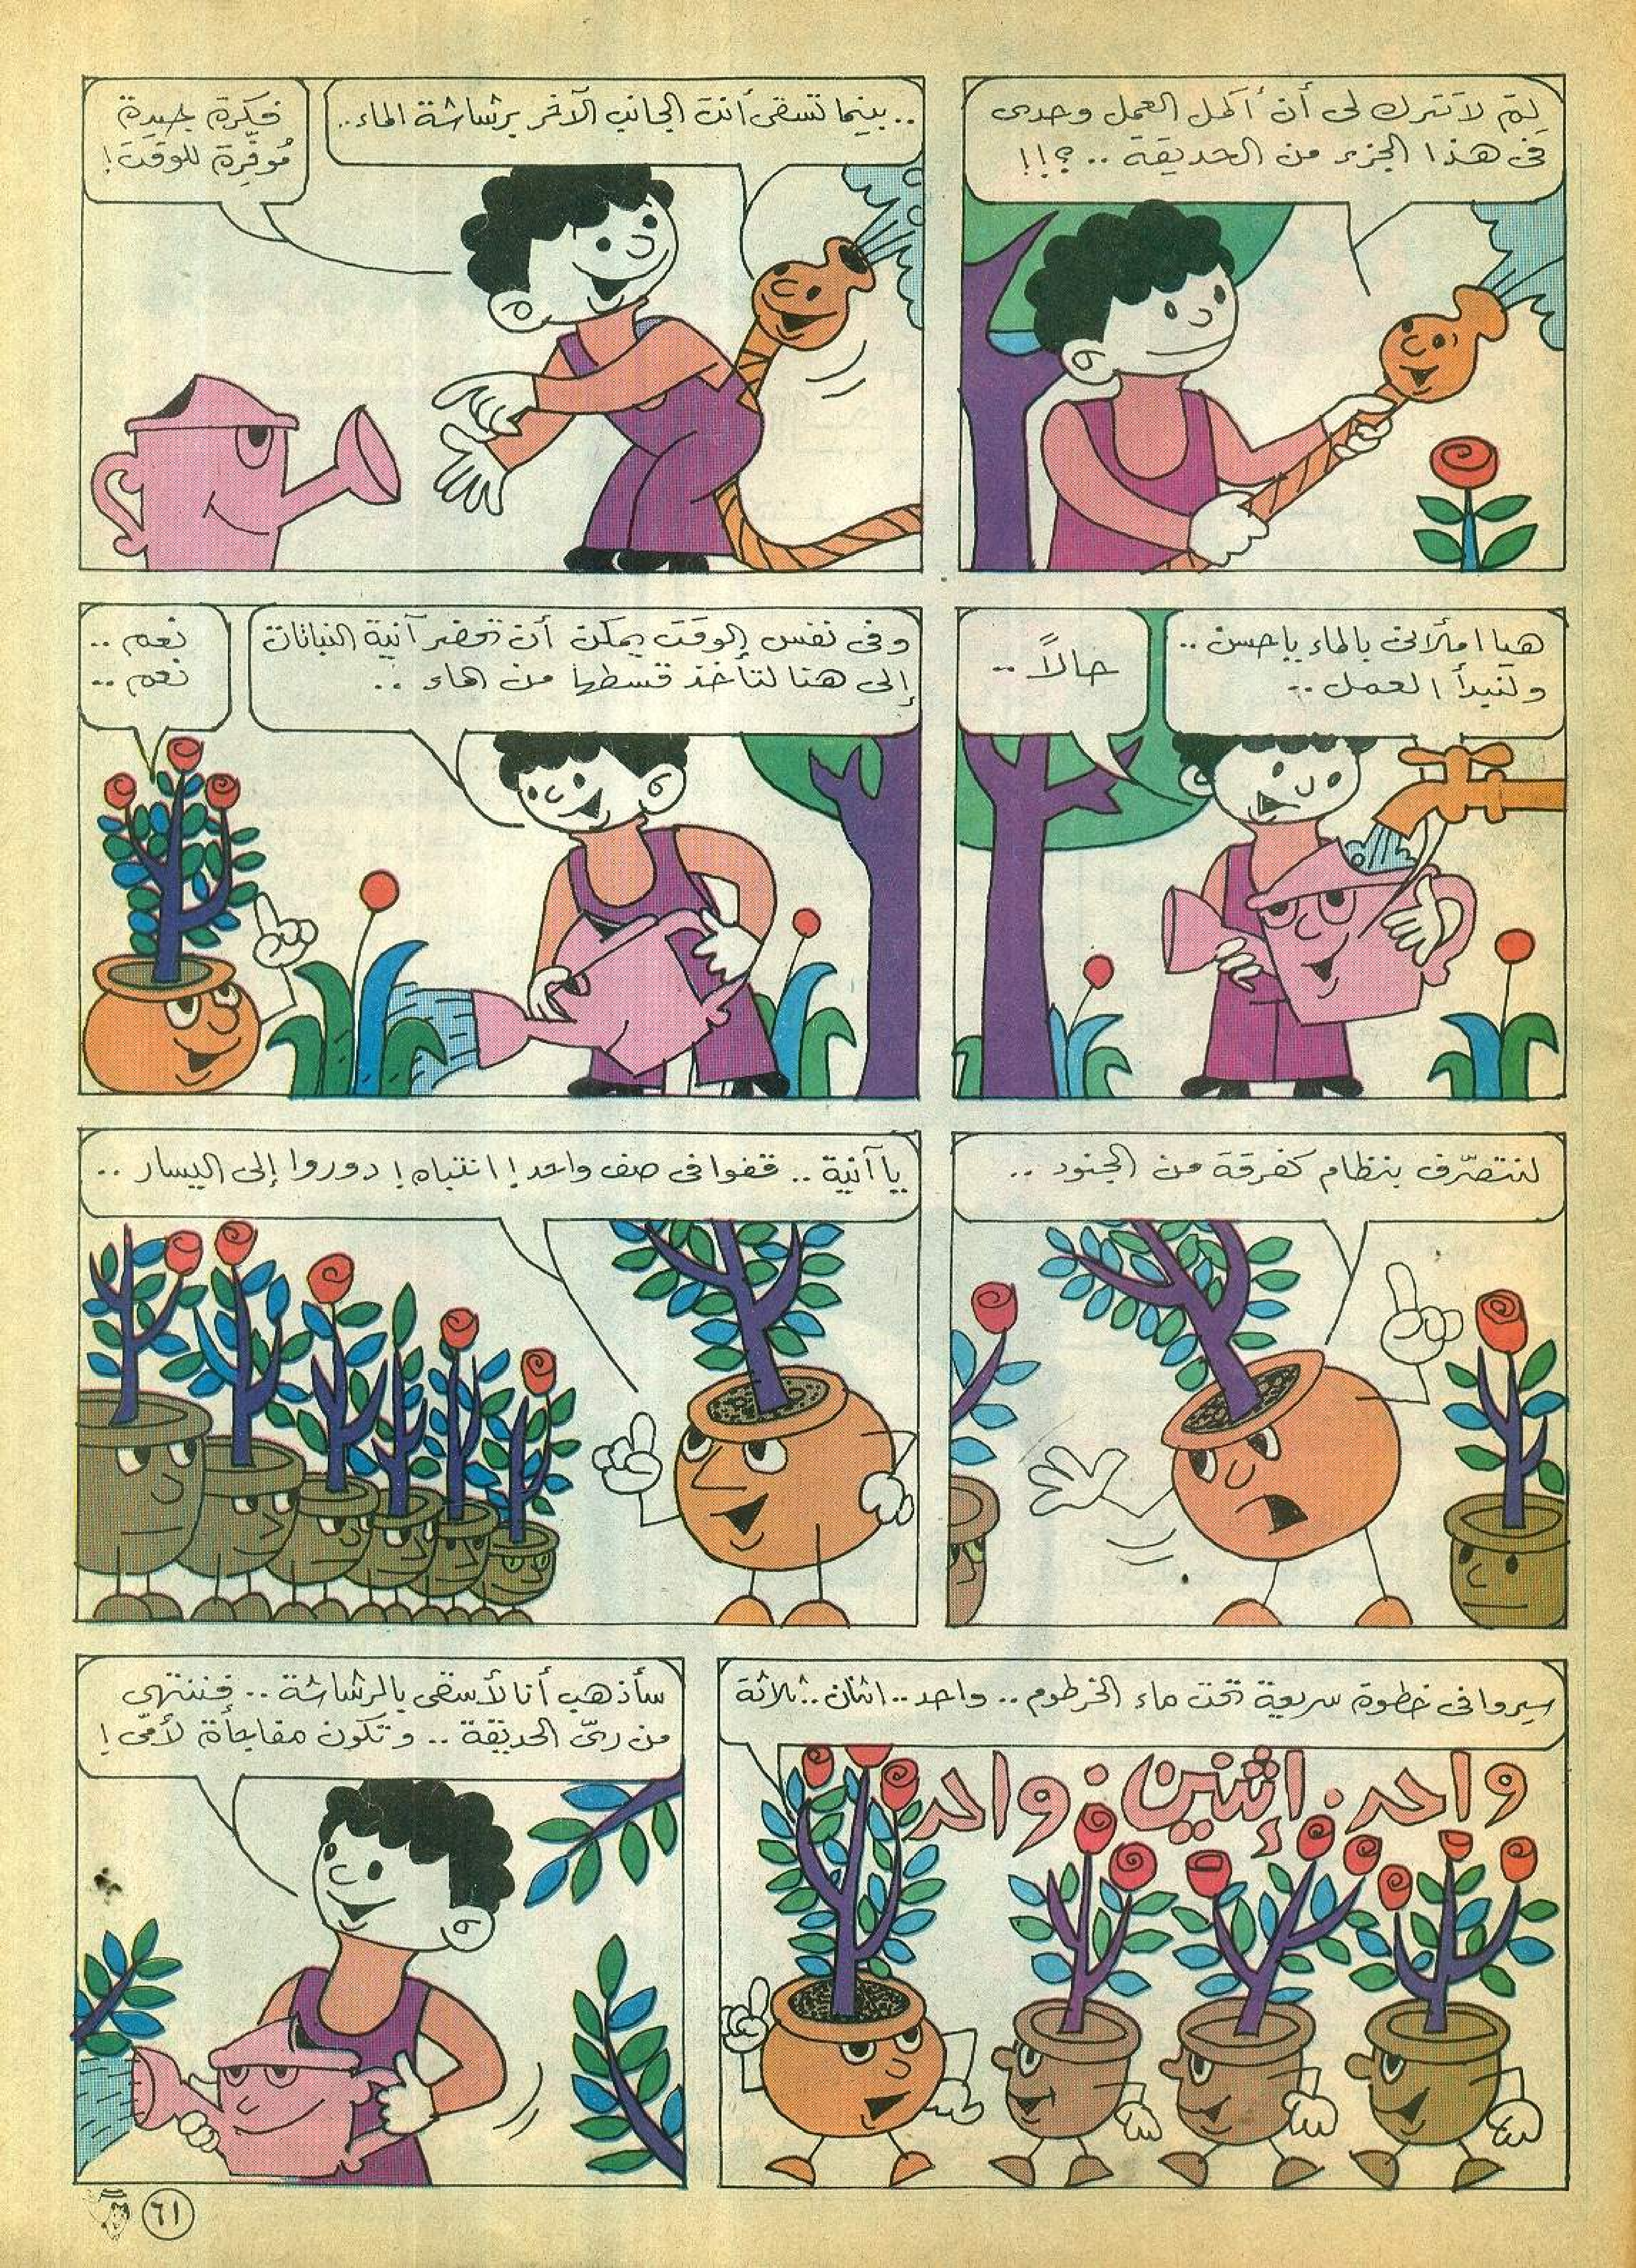 لِمَ لا تترك لى أن أكمل العمل وحدى
فى هذا الجزء من الحديقة .. ؟!!
.. بينما تسقى أنت الجانب الآخر برشاشة الماء..
فكرة جيدة
مُوفِّرة للوقت!
هيا املأنى بالماء ياحسن ..
ولنبدأ العمل ..
حالاً ..
وفى نفس الوقت يمكن أن تحضر آنية النباتات
إلى هنا لتأخذ قسطها من الماء ..
نعم ..
نعم ..
لنتصرّف بنظام كفرقة من الجنود ..
يا آنية .. قفوا فى صف واحد! انتباه! دوروا إلى اليسار ..
سيروا فى خطوة سريعة تحت ماء الخرطوم .. واحد .. اثنان .. ثلاثة
واحد . إثنين : واحد
سأذهب أنا لأسقى بالرشاشة .. فننتهى
من رىّ الحديقة .. وتكون مفاجأة لأمّى !
٦١